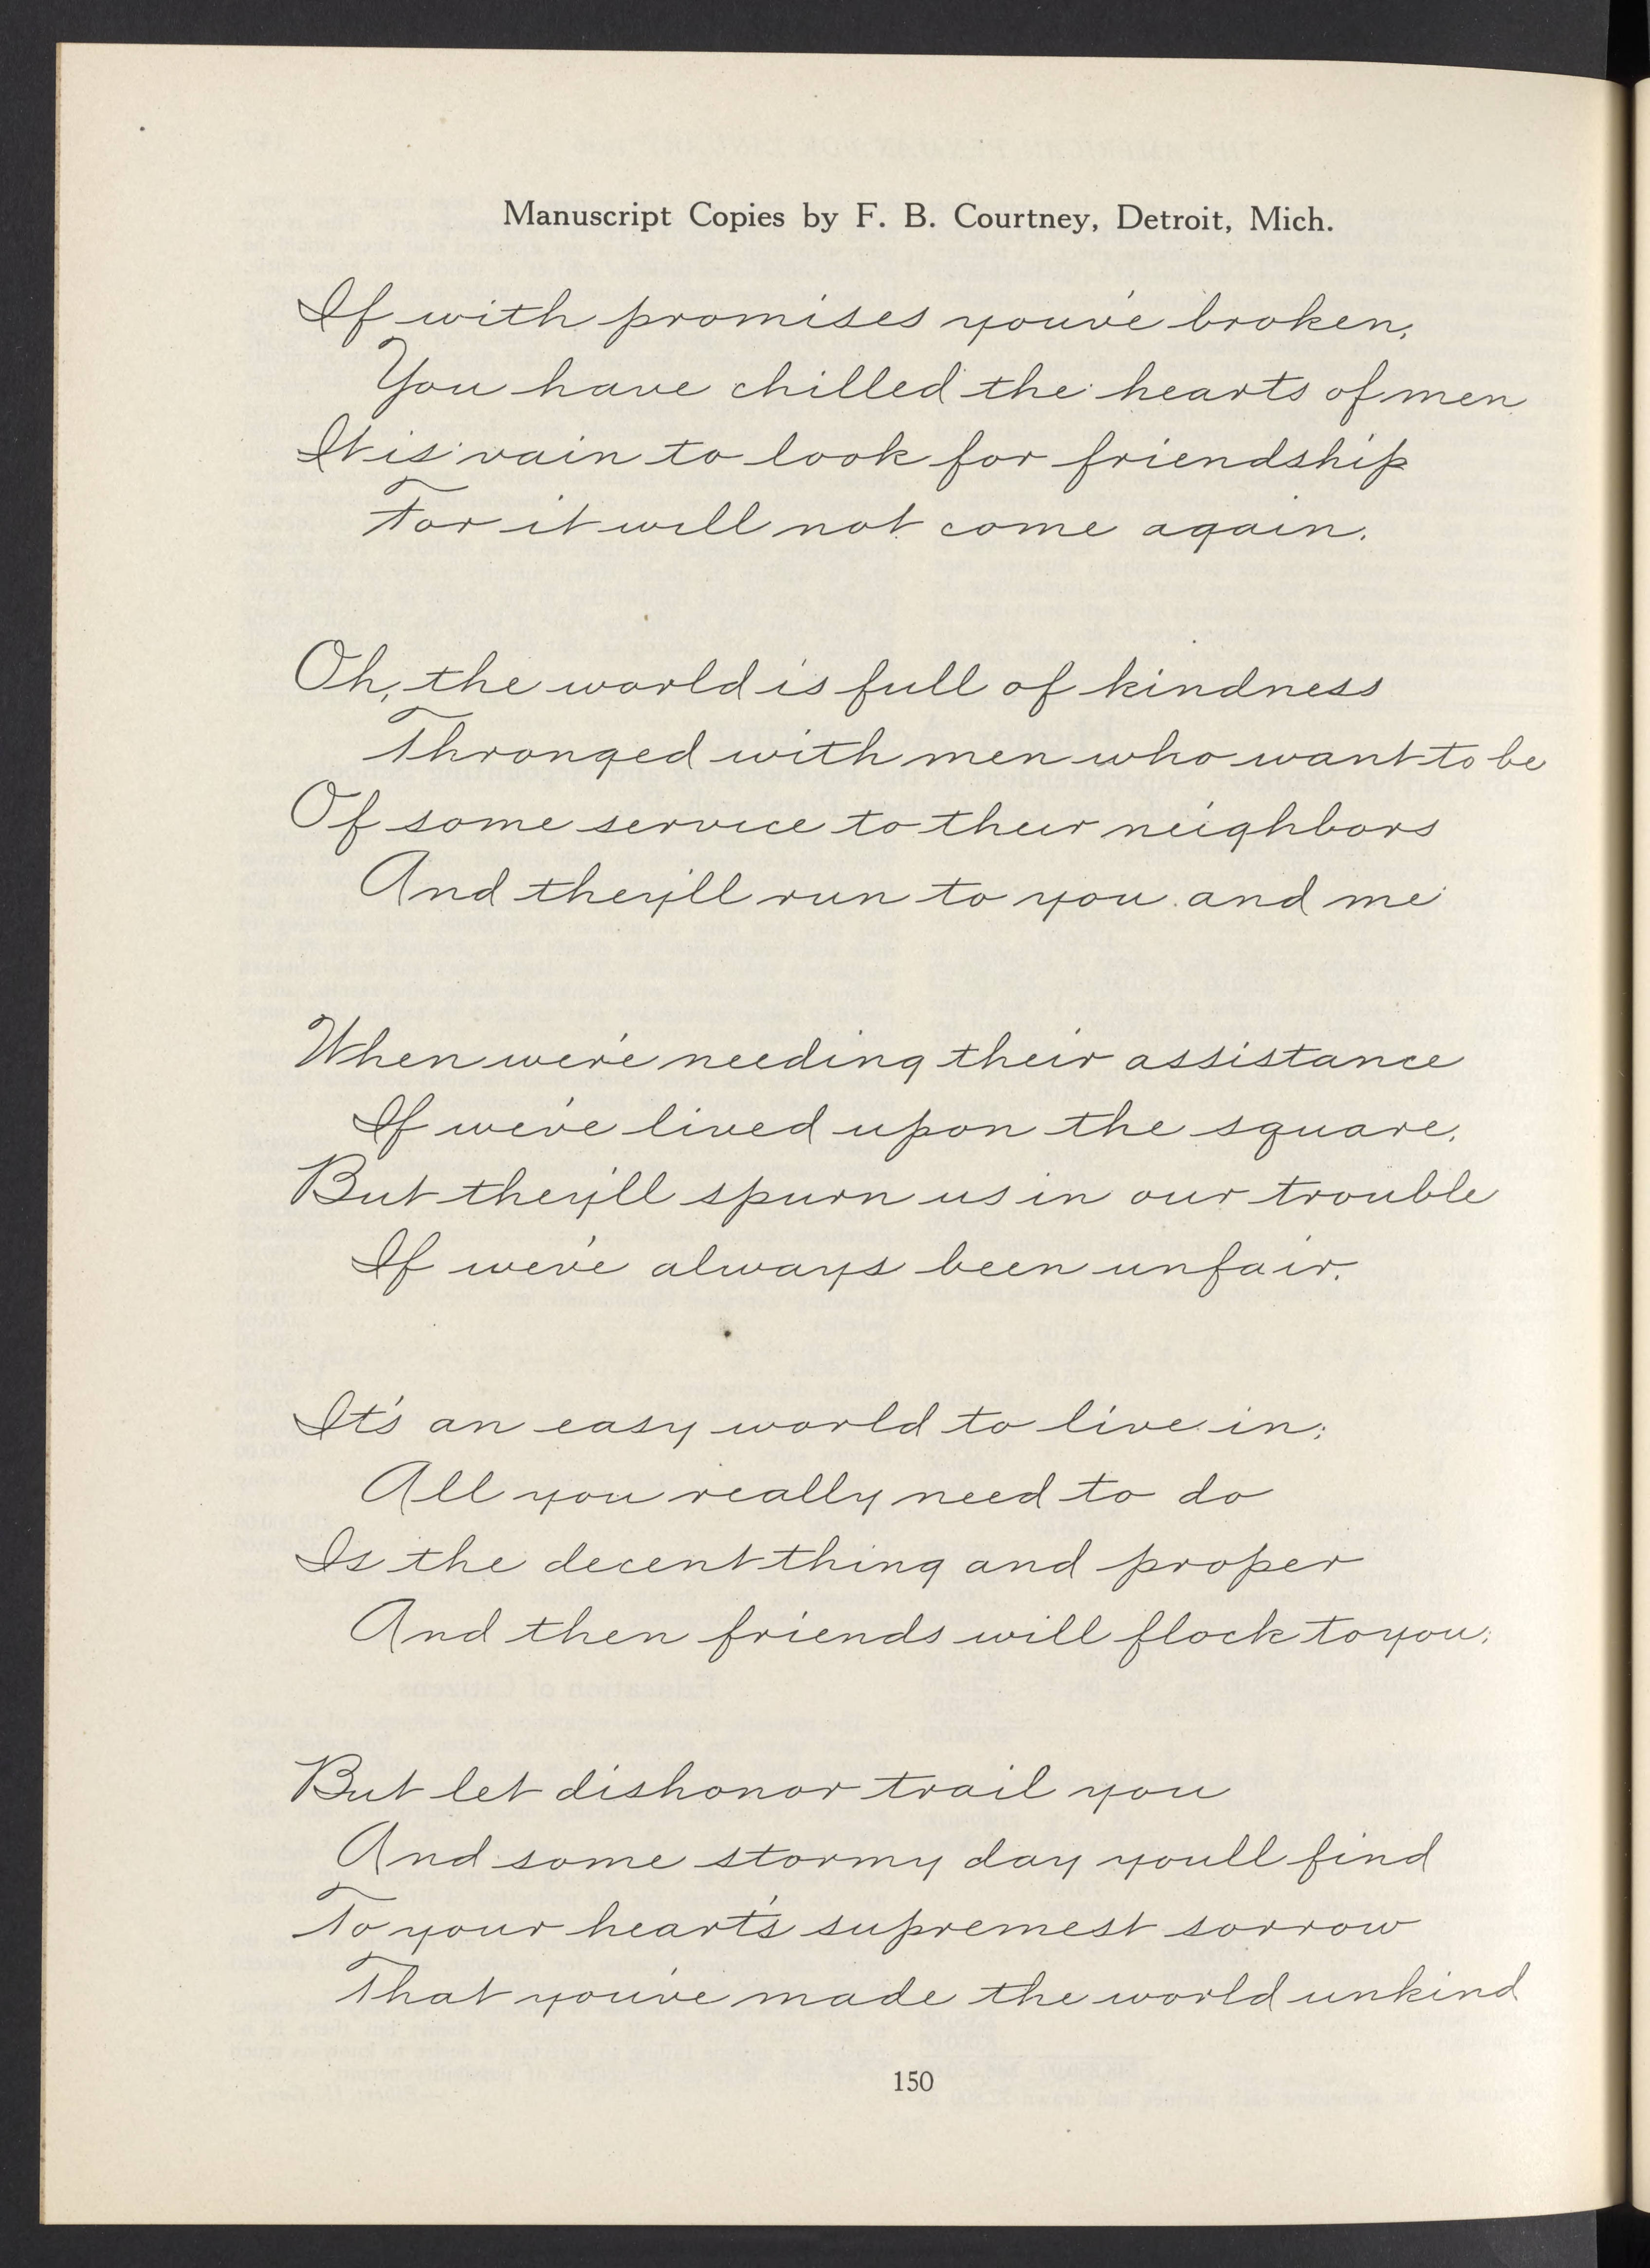 Manuscript Copies by F. B. Courtney, Detroit, Mich.
If with promises you've broken,
You have chilled the hearts of men
It is vain to look for friendship
For it will not come again.
Oh, the world is full of kindness
Thronged with men who want to be
Of some service to their neighbors
And they'll run to you and me
When we're needing their assistance
If we've lived upon the square,
But they'll spurn us in our trouble
If we've always been unfair.
It's an easy world to live in;
All you really need to do
Is the decent thing and proper
And then friends will flock to you;
But let dishonor trail you
And some stormy day youll find
To your heart's supremest sorrow
That you've made the world unkind
150